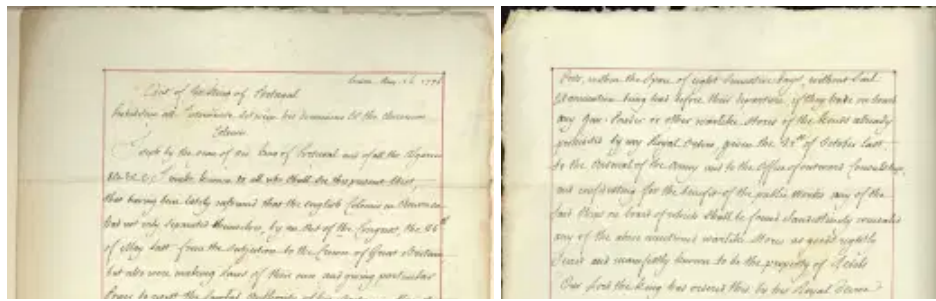 Edict of the King of Portugal
Prohibiting all Commerce between his dominions & the American
Colonies
I Joseph by the of God King of Portugal and of all the Algarves
&c &c &c make known to all who shall see this present Edict,
that having been lately informed that the english Colonies in America
had not only separated themselves, by an Act of the Congress, the
of May last from the subjection to the Crown of Great Britain
but also were making Laws of their own and giving particular
Ports, within the space of eight successive days, without said
Examination being had before their departure if they have on board
any Gun Powder or other warlike Stores of the kinds already
prohibited by my Royal given the of October last
to the Arsenal of the Army and to the Office of outward
and confiscating for the benefit of the public Works any of the
said Ships on board of which shall be found clandestinely concealed
any of the above mentioned warlike Stores as goods rightly
and manifestly known to be the property of
Our Lord the King has ordered this by his Royal Decree